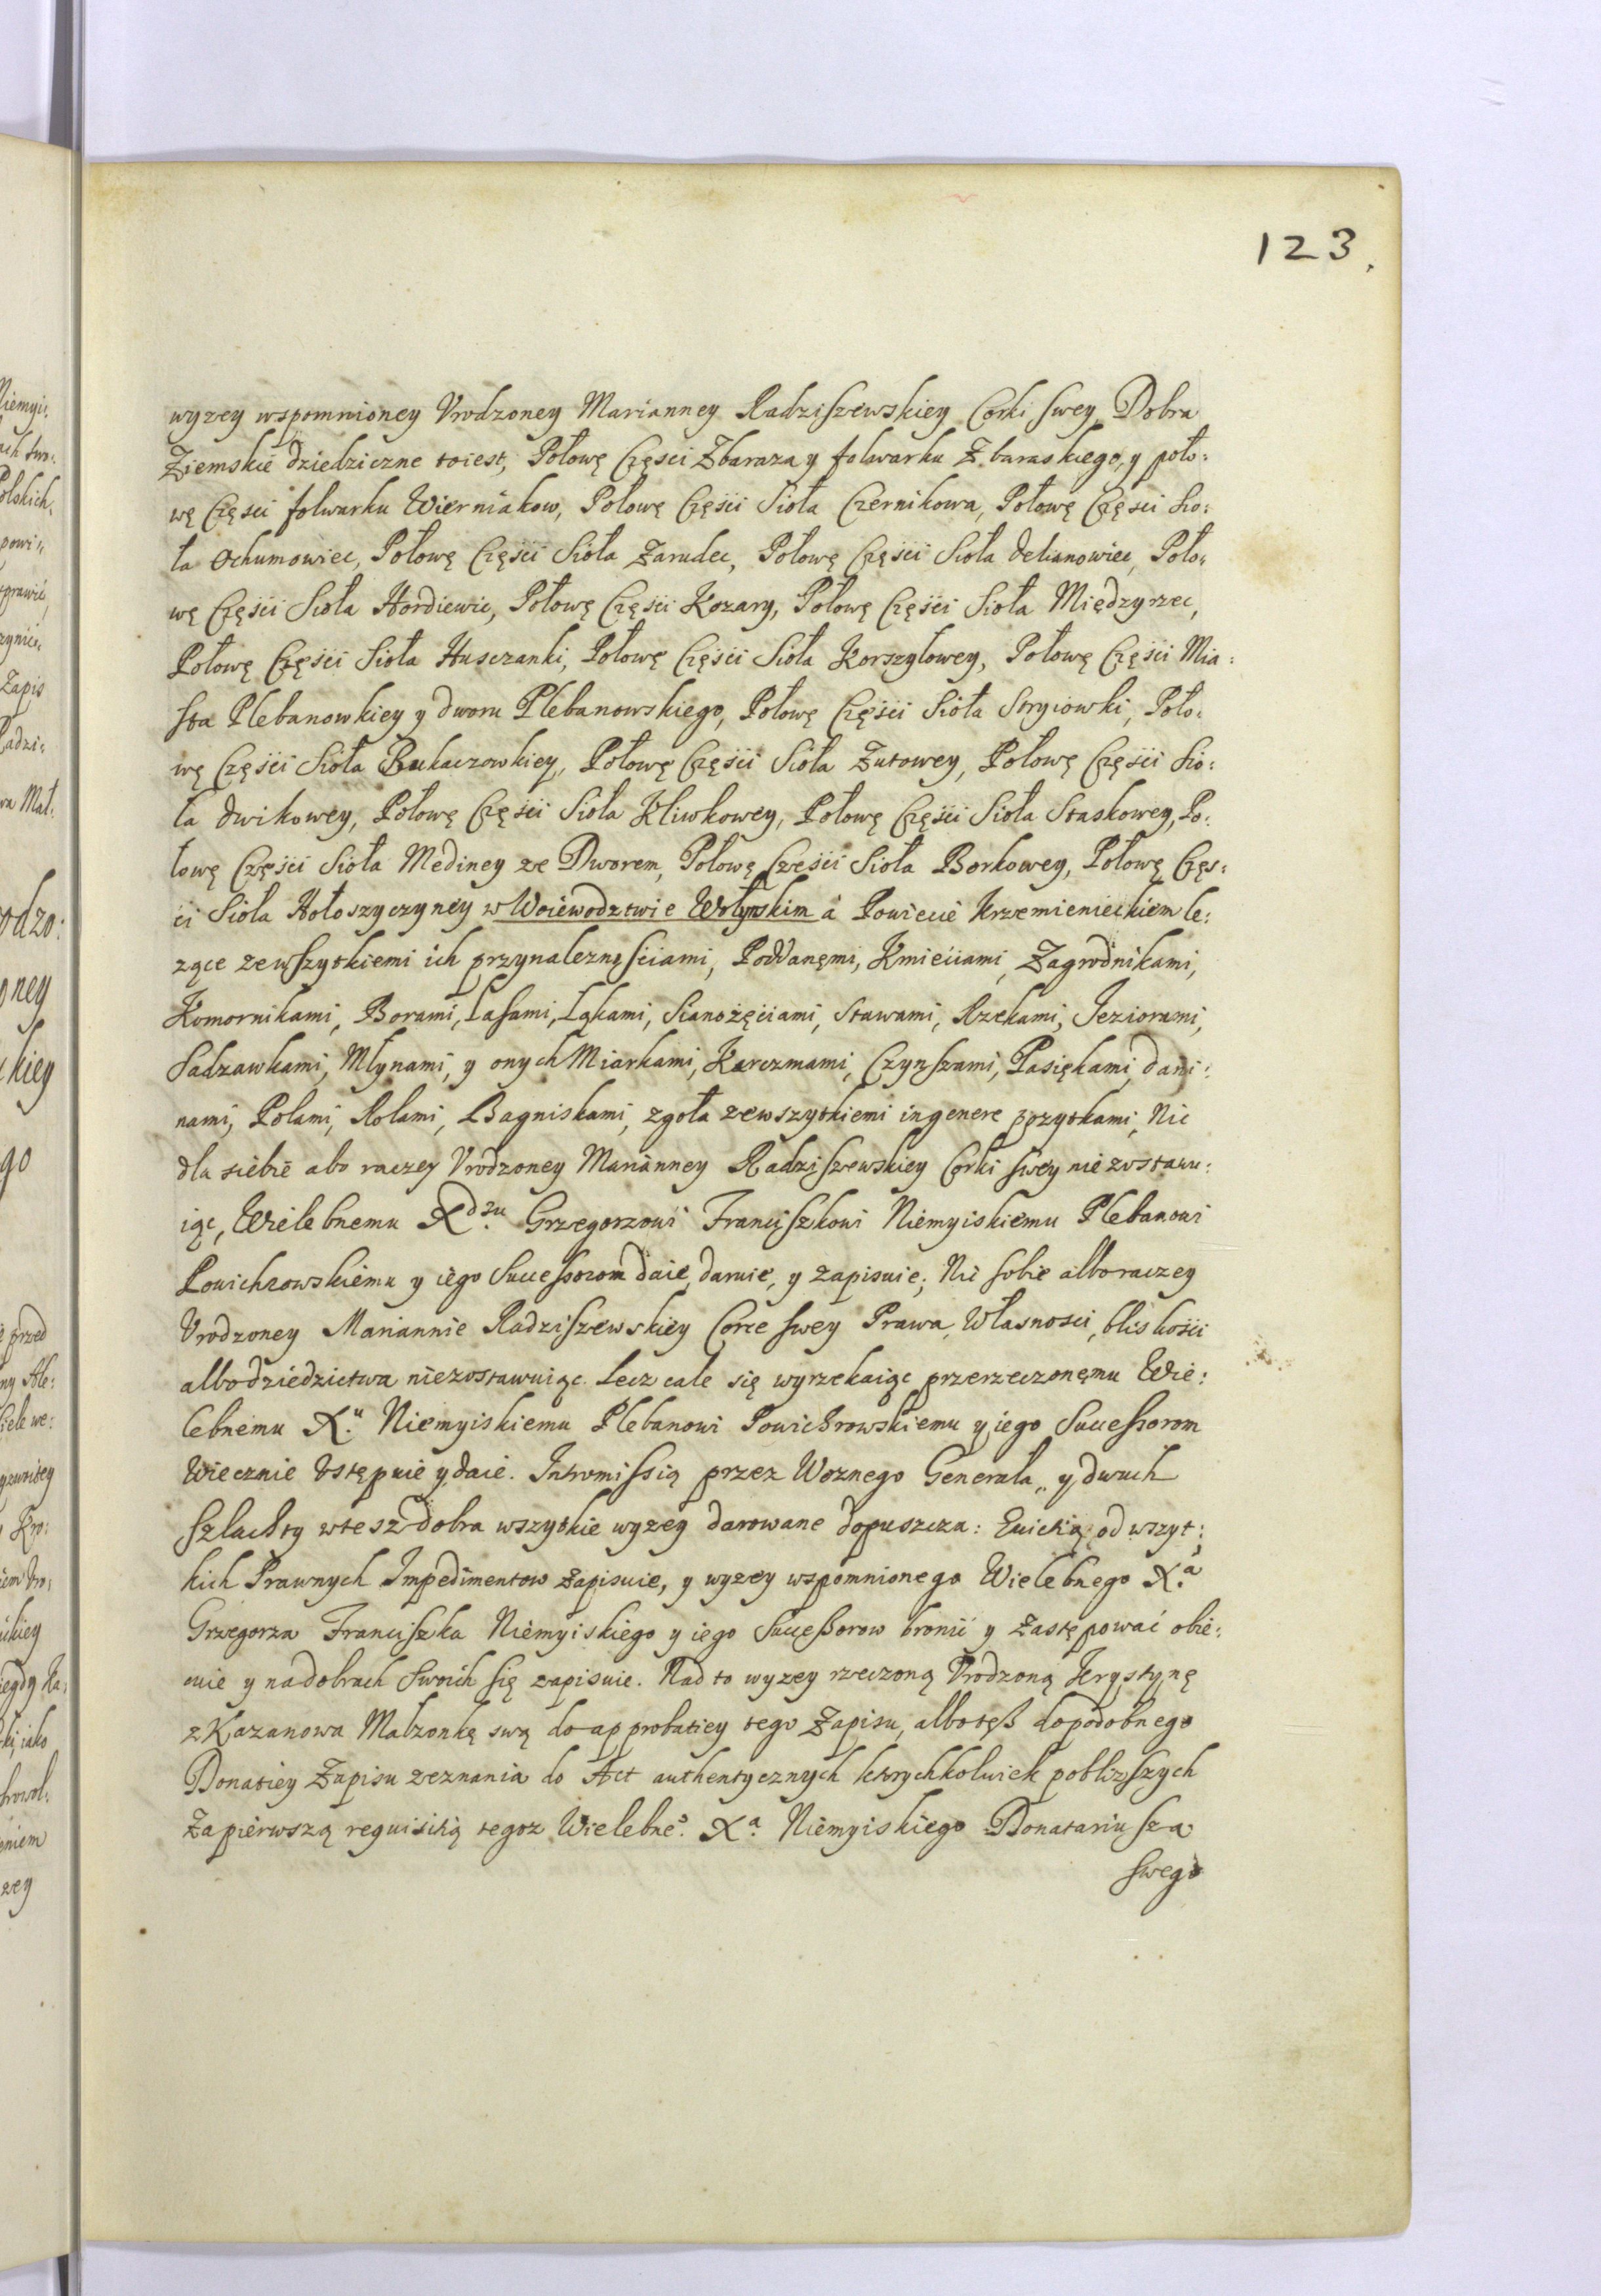 123.
wyzey wspomnioney Vrodzoney Marianney Radziszewskiey Corki swey Dobra
Ziemskie dziedziczne toiest, Połowę Częsci Zbaraza y folwarku Zbaraskiego, y poło:
wę Częsci folwarku Wierniakow, Połowę Częsci Sioła Czernikowa, Połowę Częsci Sio:
ła Ochumowiec, Połowę Częsci Sioła Zarudec, Połowę Częsci Sioła Delianowiec, Poło:
wę Częsci Sioła Hordiewic, Połowę Częsci Kozary, Połowę Częsci Sioła Międzyrzec,
Połowę Częsci Sioła Husczanki, Połowę Częsci Sioła Korszyłowey, Połowę Częsci Mia:
sta Plebanowkiey y dworu Plebanowskiego, Połowę Częsci Sioła Stryiowki, Poło:
wę Częsci Sioła Bukaczowkiey, Połowę Częsci Sioła Zutowey, Połowę Częsci Sio:
ła Dwikowey, Połowę Częsci Sioła Kliwkowey, Połowę Częsci Sioła Staskowey, Po:
łowę Częsci Sioła Mediney ze Dworem, Połowę Częsci Sioła Borkowey, Połowę Częs:
ci Sioła Hołoszyczyney w Woiewodztwie Wołynskim á Powiecie Krzemienieckiem le:
zące zewszytkiemi ich przynaleznosciami, Poddanęmi, Kmieciami, Zagrodnikami,
Komornikami, Borami, Lasami, Ląkami, Sianożęciami, Stawami, Rzekami, Jeziorami,
Sadzawkami, Młynami, y onych Miarkami, Karczmami, Czynszami, Pasiękami, dani:
nami, Polami, Rolami, Bagniskami, zgoła zewszytkiemi ingenere pozytkami, Nic
dla siebie abo raczey Vrodzoney Marianney Radziszewskiey Corki swey nie zostawu:
iąc, Wielebnemu Xdzu. Grzegorzowi Franciszkowi Niemyiskiemu Plebanowi
Powichrowskiemu y iego Successorom daie, daruie, y zapisuie; Nic sobie albo raczey
Vrodzoney Mariannie Radziszewskiey Corce swey Prawa, Własnosci, bliskosci
albo dziedzictwa niezostawuiąc. Lecz cale się wyrzekaiąc przerzeczonęmu Wie:
lebnemu Xu. Niemyiskiemu Plebanowi Powichrowskiemu y iego Successorom
Wiecznie Vstępuie y daie. Intromissią przez Woznego Generała, y dwuch
Szlachty wtesz dobra wszytkie wyzey darowane dopuszcza: Ewictią od wszyt:
kich Prawnych Impedimentow zapisuie, y wyzey wspomnionego Wielebnego Xa.
Grzegorza Franciszka Niemyiskiego y iego Successorow bronic y zastępować obie:
cuie y na dobrach swoich się zapisuie. Nad to wyzey rzeczoną Vrodzoną Krystynę
z Kazanowa Malzonkę swą do approbatiey tego Zapisu, albo teß do podobnego
Donatiey Zapisu zeznania do Act authentycznych ktorychkolwiek poblizszych
Za pierwszą requisitią tegoz Wielebneo. Xa. Niemyiskiego Donatariusza
swego